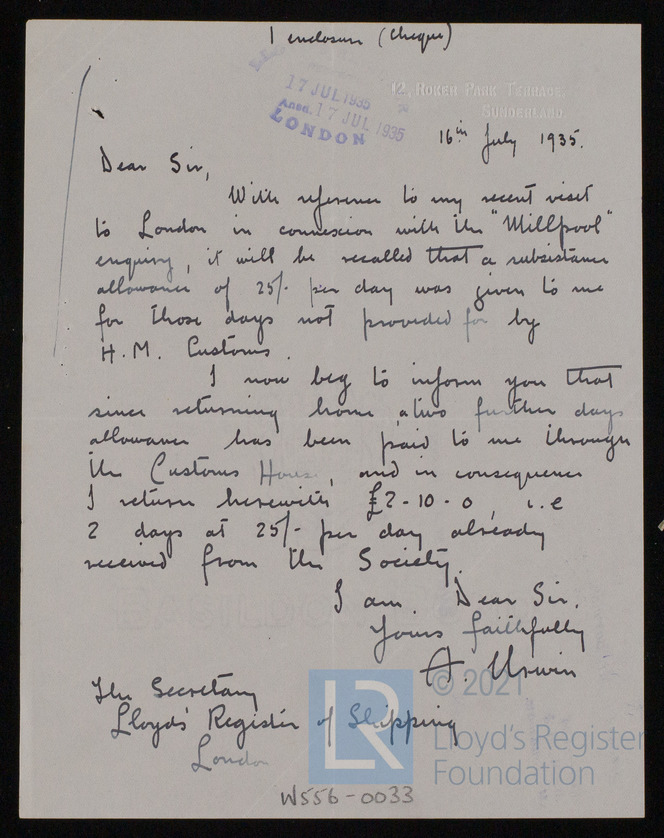 1 enclosure (cheque)
17 JUL 1935
Ansd. 17 JUL 1935
LONDON
12, ROKER PARK TERRACE,
SUNDERLAND.
16th July 1935.
Dear Sir,
With reference to my recent visit
to London in connexion with the "Millpool"
enquiry, it will be recalled that a subsistance
allowance of 25/- per day was given to me
for those days not provided for by
H.M. Customs.
I now beg to inform you that
since returning home a two further days
allowance has been paid to me through
the Customs House, and in consequence
I return herewith £2-10-0, i.e
2 days at 25/- per day already
received from the Society.
I am Dear Sir.
Yours faithfully
A. Urwin
The Secretary
Lloyd's Register of Shipping
London
LR
© 2021
Lloyd's Register
Foundation
W556-0033